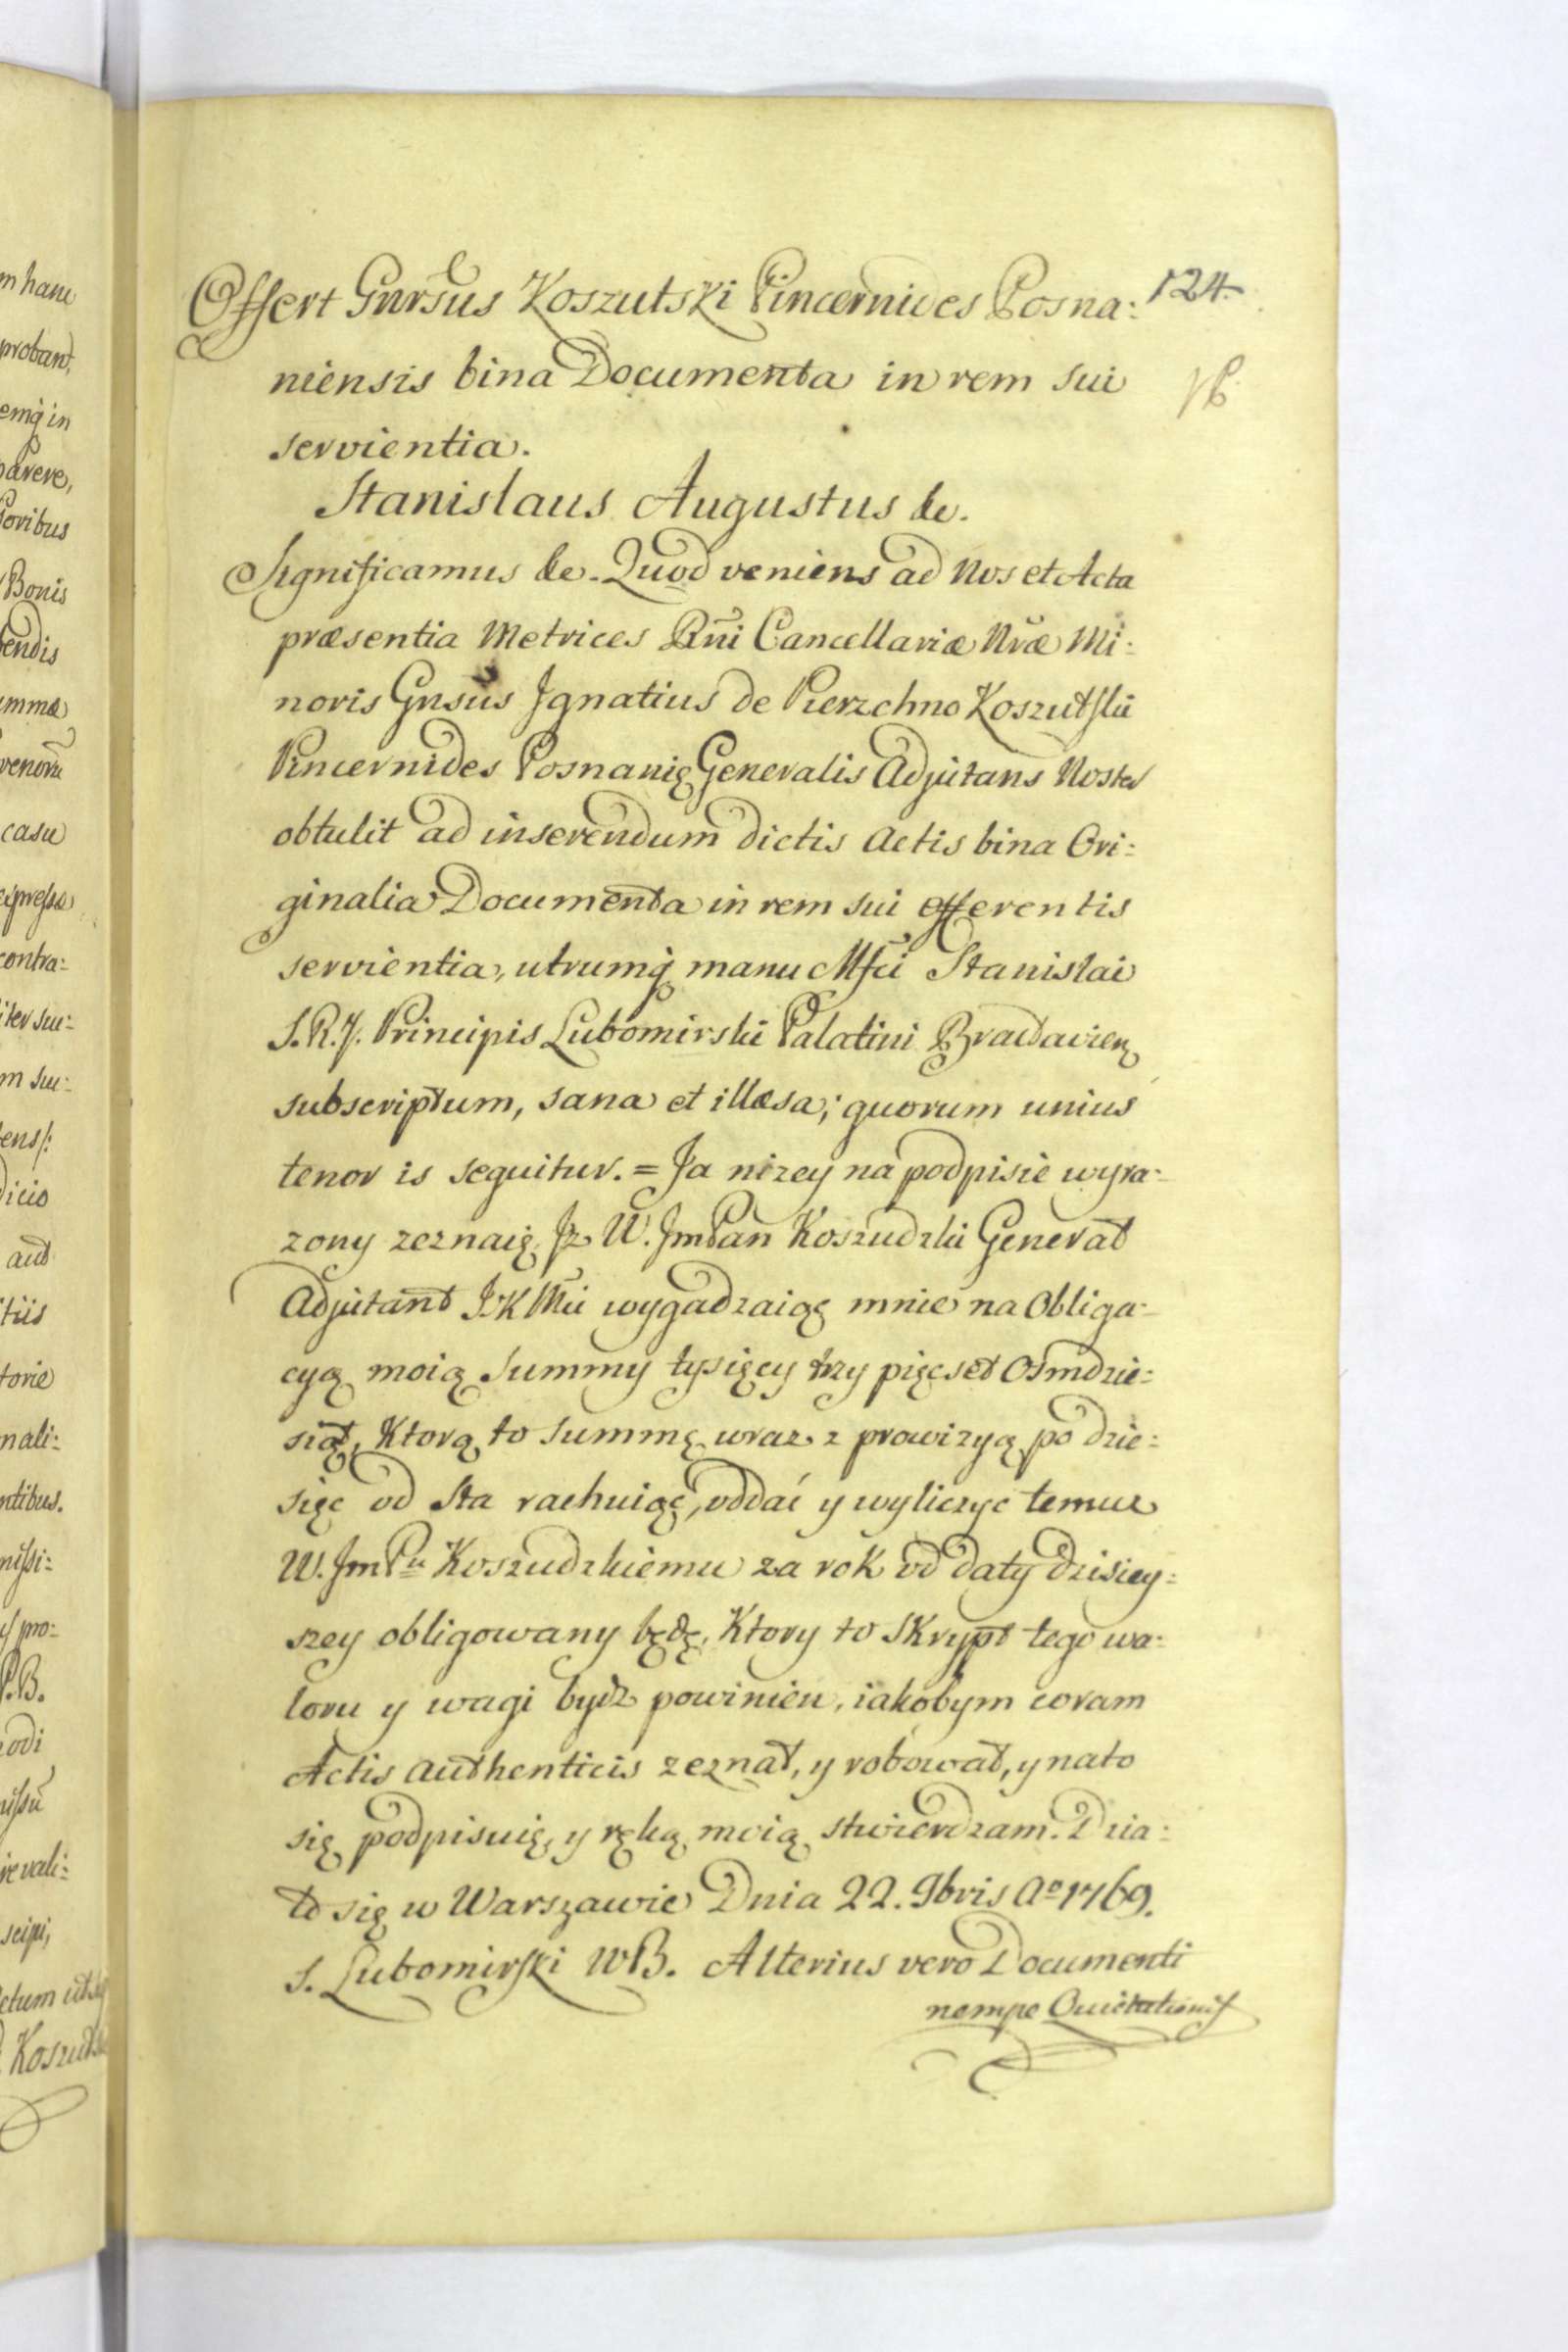 124.
Offert Gnrsus Koszutski Pincernides Posna:
niensis bina Documenta in rem sui
servientia.
Stanislaus Augustus &c.
Significamus &c. Quod veniens ad Nos et Acta
præsentia Metrices Rni Cancellariæ Nræ Mi:
noris Gnsus Ignatius de Pierzchno Koszutski
Pincernides Posnanię Generalis Adjutans Noster
obtulit ad inserendum dictis Actis bina Ori:
ginalia Documenta in rem sui offerentis
servientia, utrumq manu Mfci Stanislai
S. R. J. Principis Lubomirski Palatini Bracłavien
subscriptum, sana et illæsa; quorum unius
tenor is sequitur. = Ja nizey na podpisie wyra:
zony zeznaię, Jz W. JmPan Koszudzki Generał
Adjutant JKMci wygadzaiąc mnie na Obliga:
cyą moią Summy tysięcy trzy pięcset Osmdzie:
siąt, Ktorą to Summę wraz z prowizyą po dzie:
sięc od Sta rachuiąc, oddać y wyliczyc temuz
W. JmPu Koszudzkiemu za rok od daty dzisiey:
szey obligowany będę, Ktory to Skrypt tego wa:
loru y wagi bydz powinien, iakobym coram
Actis Authenticis zeznał, y robował, y na to
się podpisuię, y ręką moią stwierdzam. Dzia:
ło się w Warszawie Dnia 22. 9bris Ao 1769.
S. Lubomirski WB. Alterius vero Documenti
nempe Quietationis